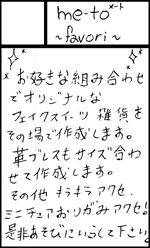 me-to メート
~favori~
お好きな組み合わせ
でオリジナルな
フェイクスイーツ 雑貨を
その場で作成します。
革ブレスもサイズ合わ
せて作成します。
その他 キラキラアクセ、
ミニチュアおりがみアクセ!
是非あそびにいらして下さい